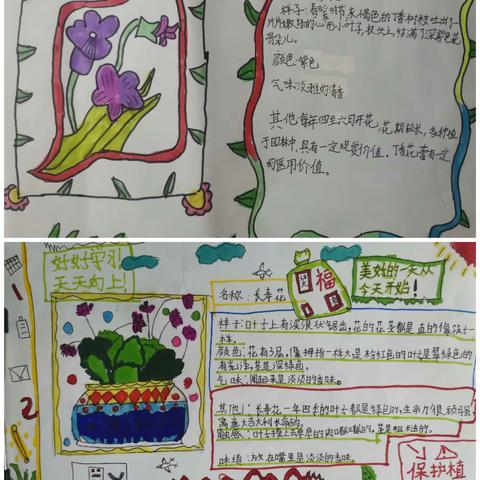 样子:春暖时节,灰褐色的丁香树枝吐出了一
片片嫩绿的心形小叶子,枝头上,挂满了深紫色花
骨朵儿。
颜色:紫色
气味:淡雅的清香
其他:每年四至六月开花,花期较长,多种植
于园林中,具有一定观赏价值。丁香花蕾有一定
的医用价值。
好好学习!
天天向上!
福
美好的一天从
今天开始!
名称:长寿花
样子:叶子上有波浪状锯齿,花的花茎都是直的像筷子一
样。
颜色:花有3层,像拇指一样大是粉红色的叶是翠绿色的
有光泽,茎是深绿色。
气味:闻起来是淡淡的香味。
其他:长寿花一年四季的叶子都是绿色的,生命力很顽强
寓意大吉大利长命的。
触感:叶子摸上去厚厚的肉嘟嘟的,茎是粗糙的。
味道:放在嘴里是淡淡的苦味。
保护植